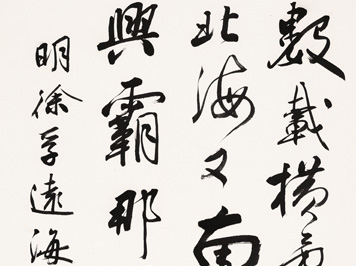 數載橫
北海又南
興霸那
明徐孚遠海